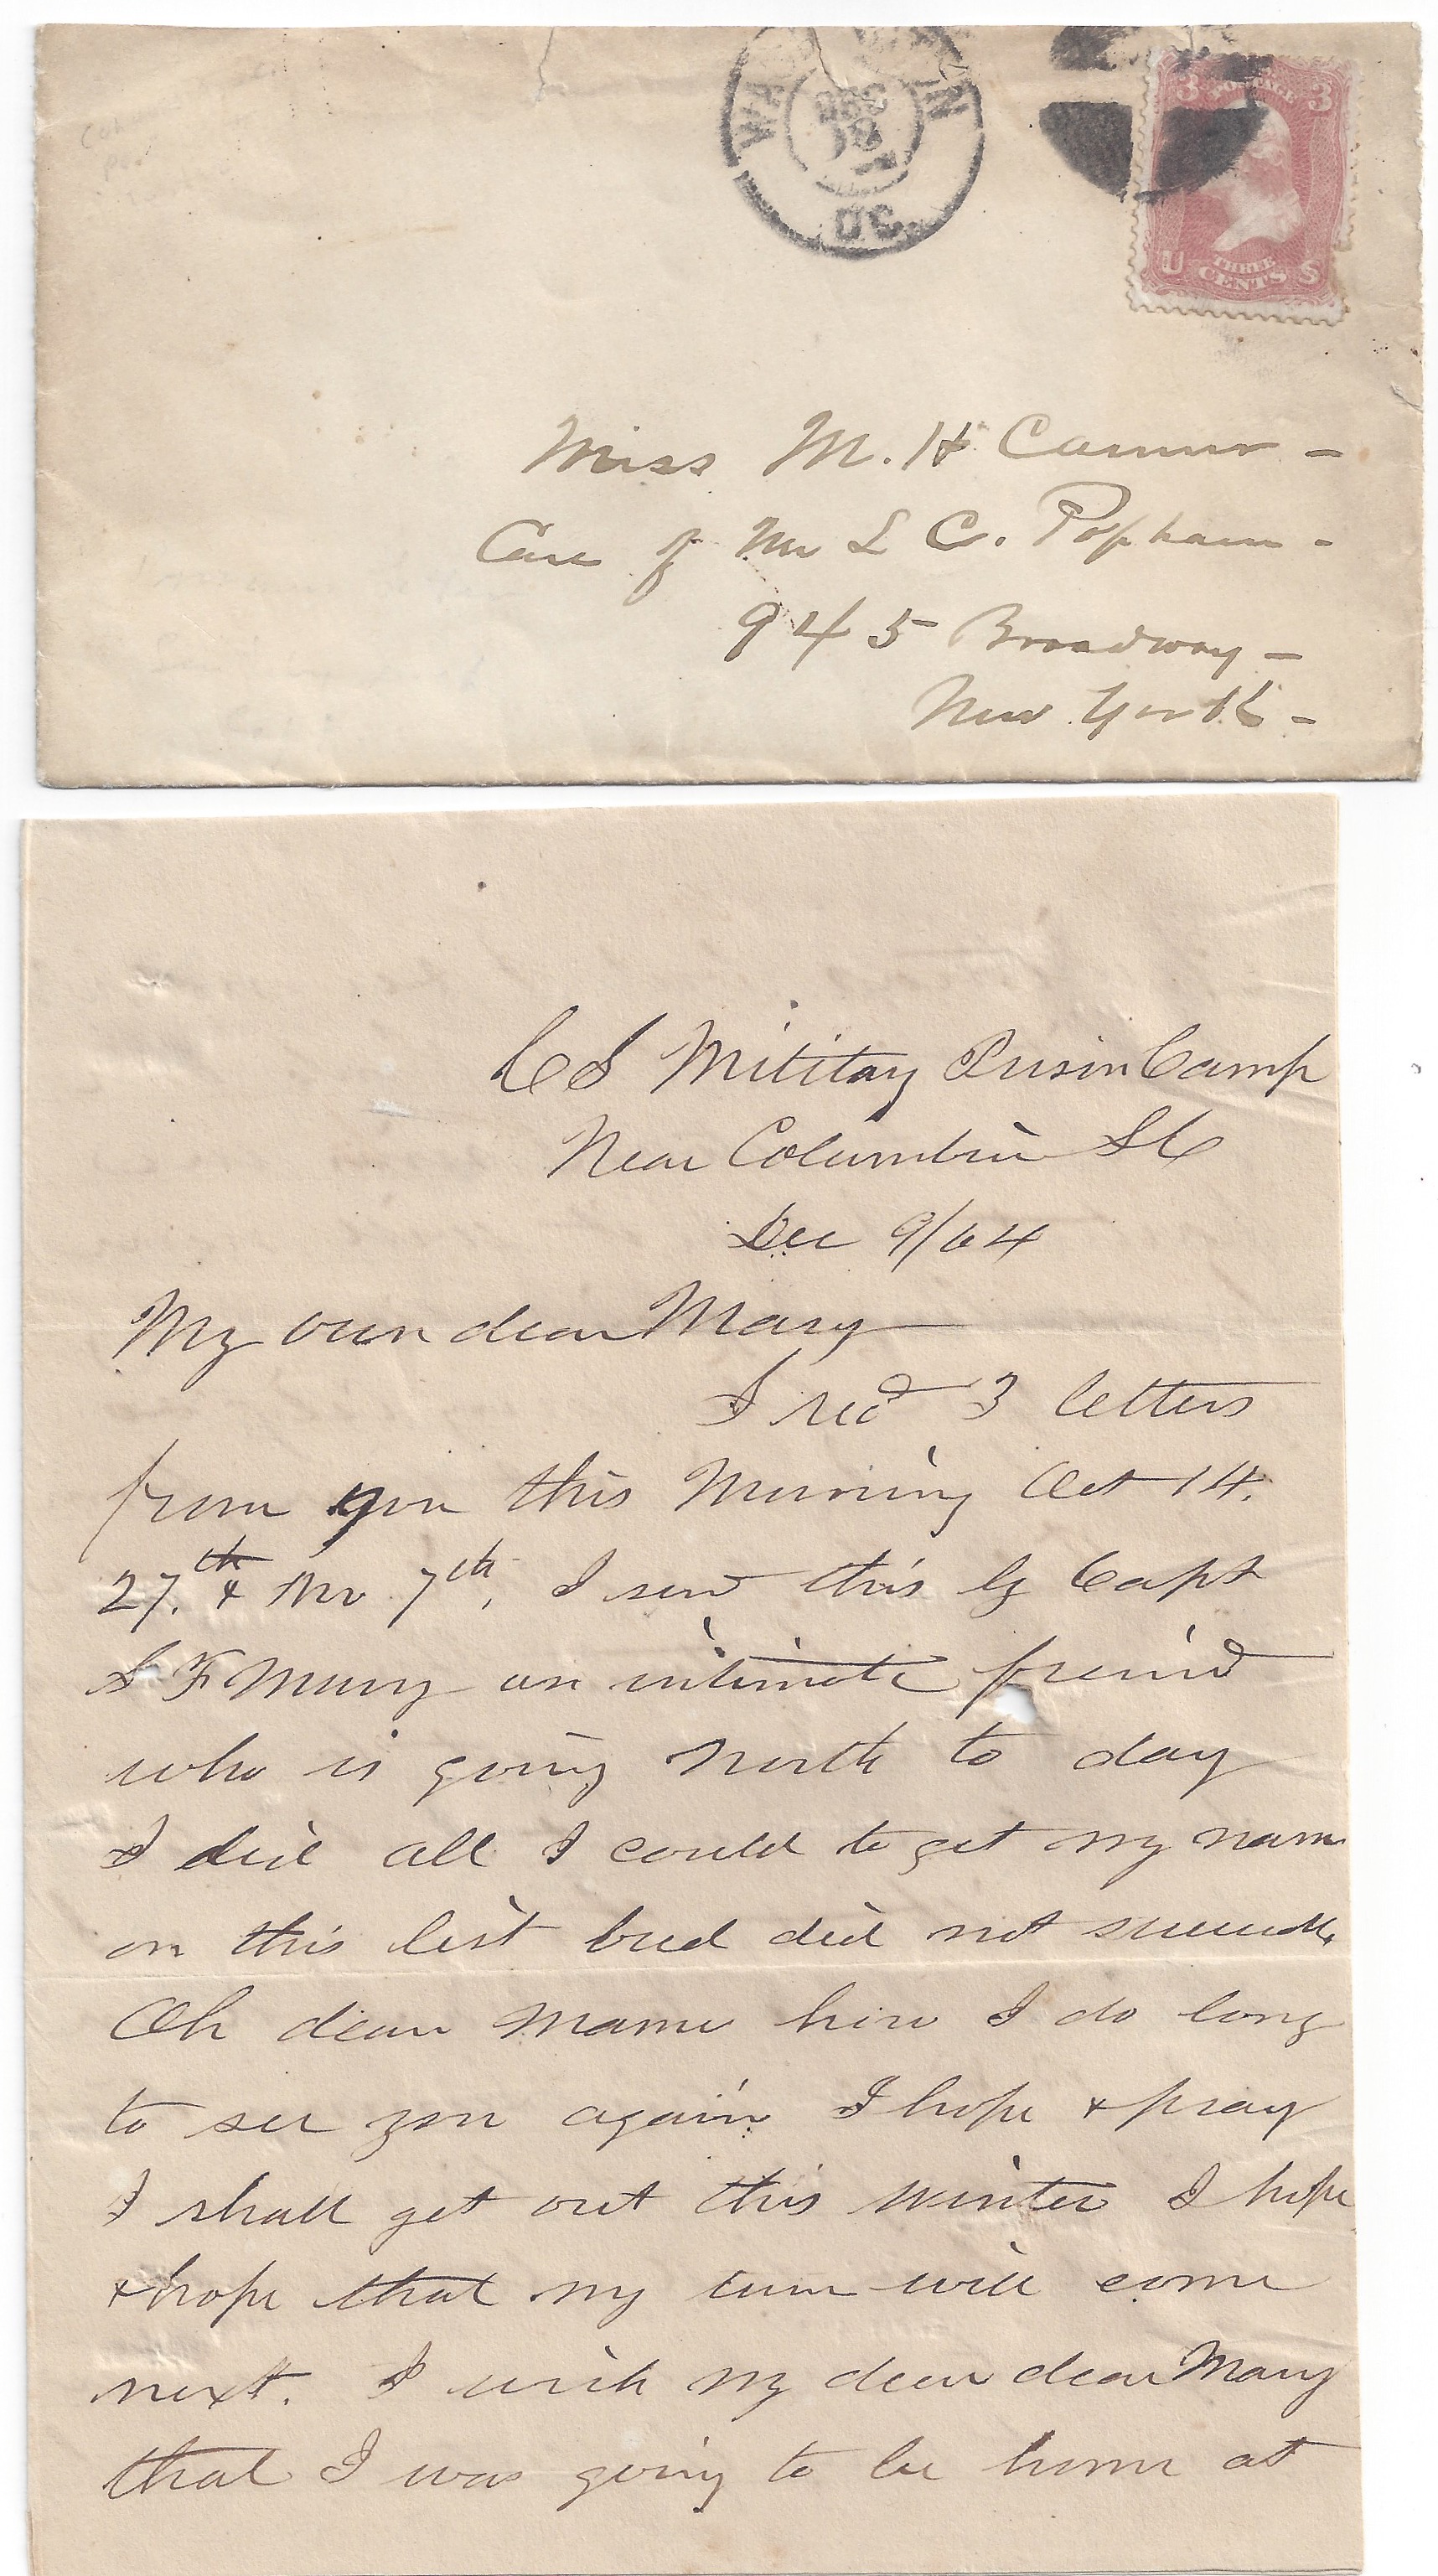 WASHINGTON
DEC
D.C.
3 POSTAGE 3
U THREE S
CENTS
Miss M. H
Care of Mr L C. Popham -
945 Broadway -
New York -
C S Military Prison Camp
Near Columbia S C
Dec 9/64
My own dear Mary
I recd 3 letters
from you this Morning Oct 14.
27.th & Nov 7th, I send this by Capt
S F Murry an intimate freind
who is going North to day
I did all I could to get my name
on this list bud did not
Oh dear Mame how I do long
to see you again I hope & pray
I shall get out this Winter I hope
& hope that my turn will come
next. I wish my dear dear Mary
that I was going to be home at